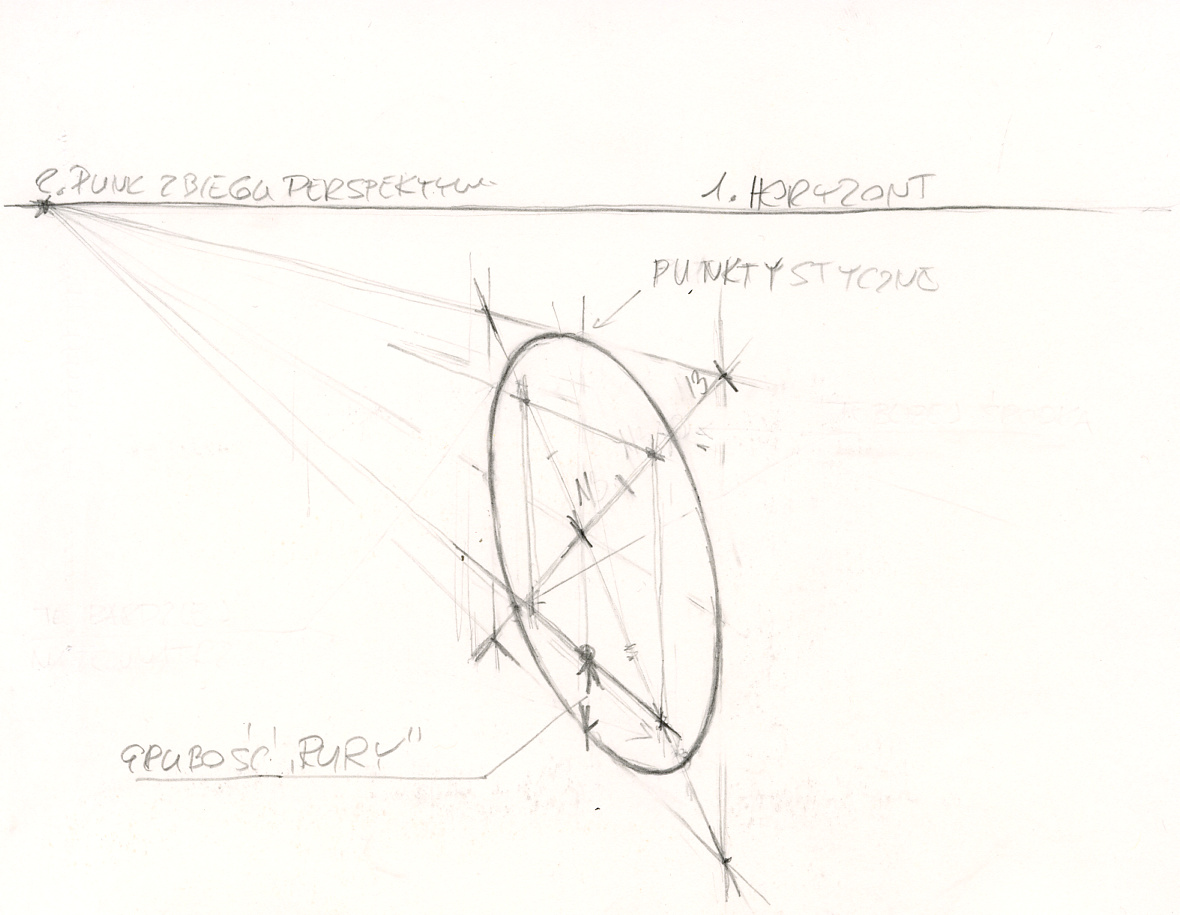 2. PUNK ZBIEGU PERSPEKTYW
1. HORYZONT
PUNKTY STYCZNE
GRUBOŚĆ „RURY"